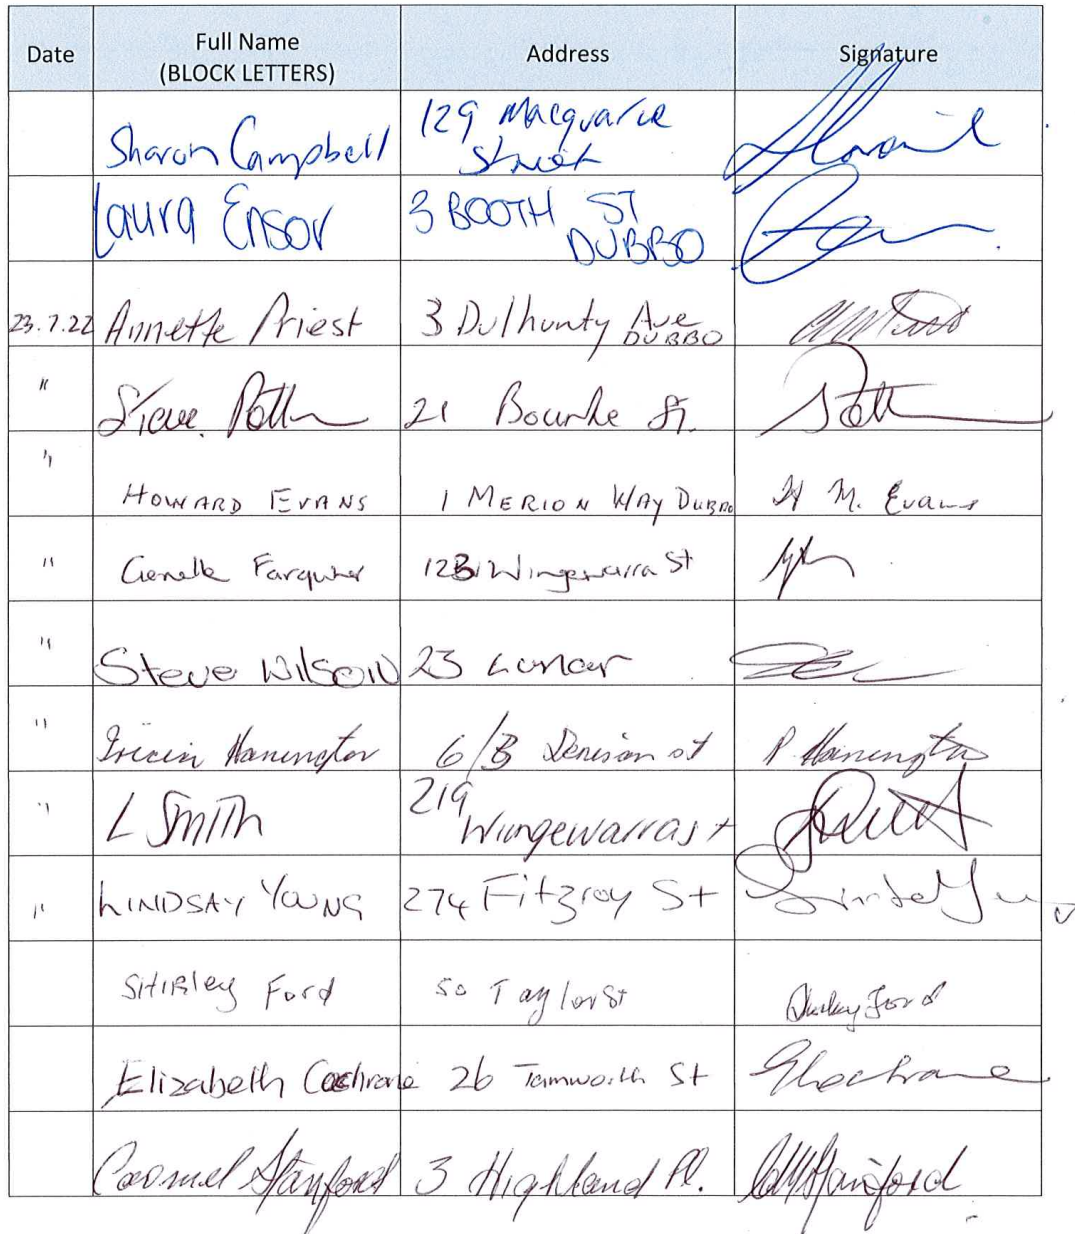 Date Full Name (BLOCK LETTERS) Address Signature
Sharon Campbell 129 Macquarie Street
Laura Ensor 3 BOOTH ST DUBBO
23.7.22 Annette Priest 3 Dulhunty Ave DUBBO
" Steve 21 Bourke St.
" HOWARD EVANS 1 MERION WAY DUBBO H M. Evans
" Genelle Farquher Wingewarra St
" Steve WilsoN 23
" Hanington 6/B Denison st P Hanington
" L SmITh 219 Wingewarra st
" LINDSAY YOUNG 274 Fitzroy St
SHIRley Ford 50 Taylor St Shirley Ford
Elizabeth Cochrane 26 Tamworth St ECochrane
Carmel Stanford 3 Highland Pl. CMStanford